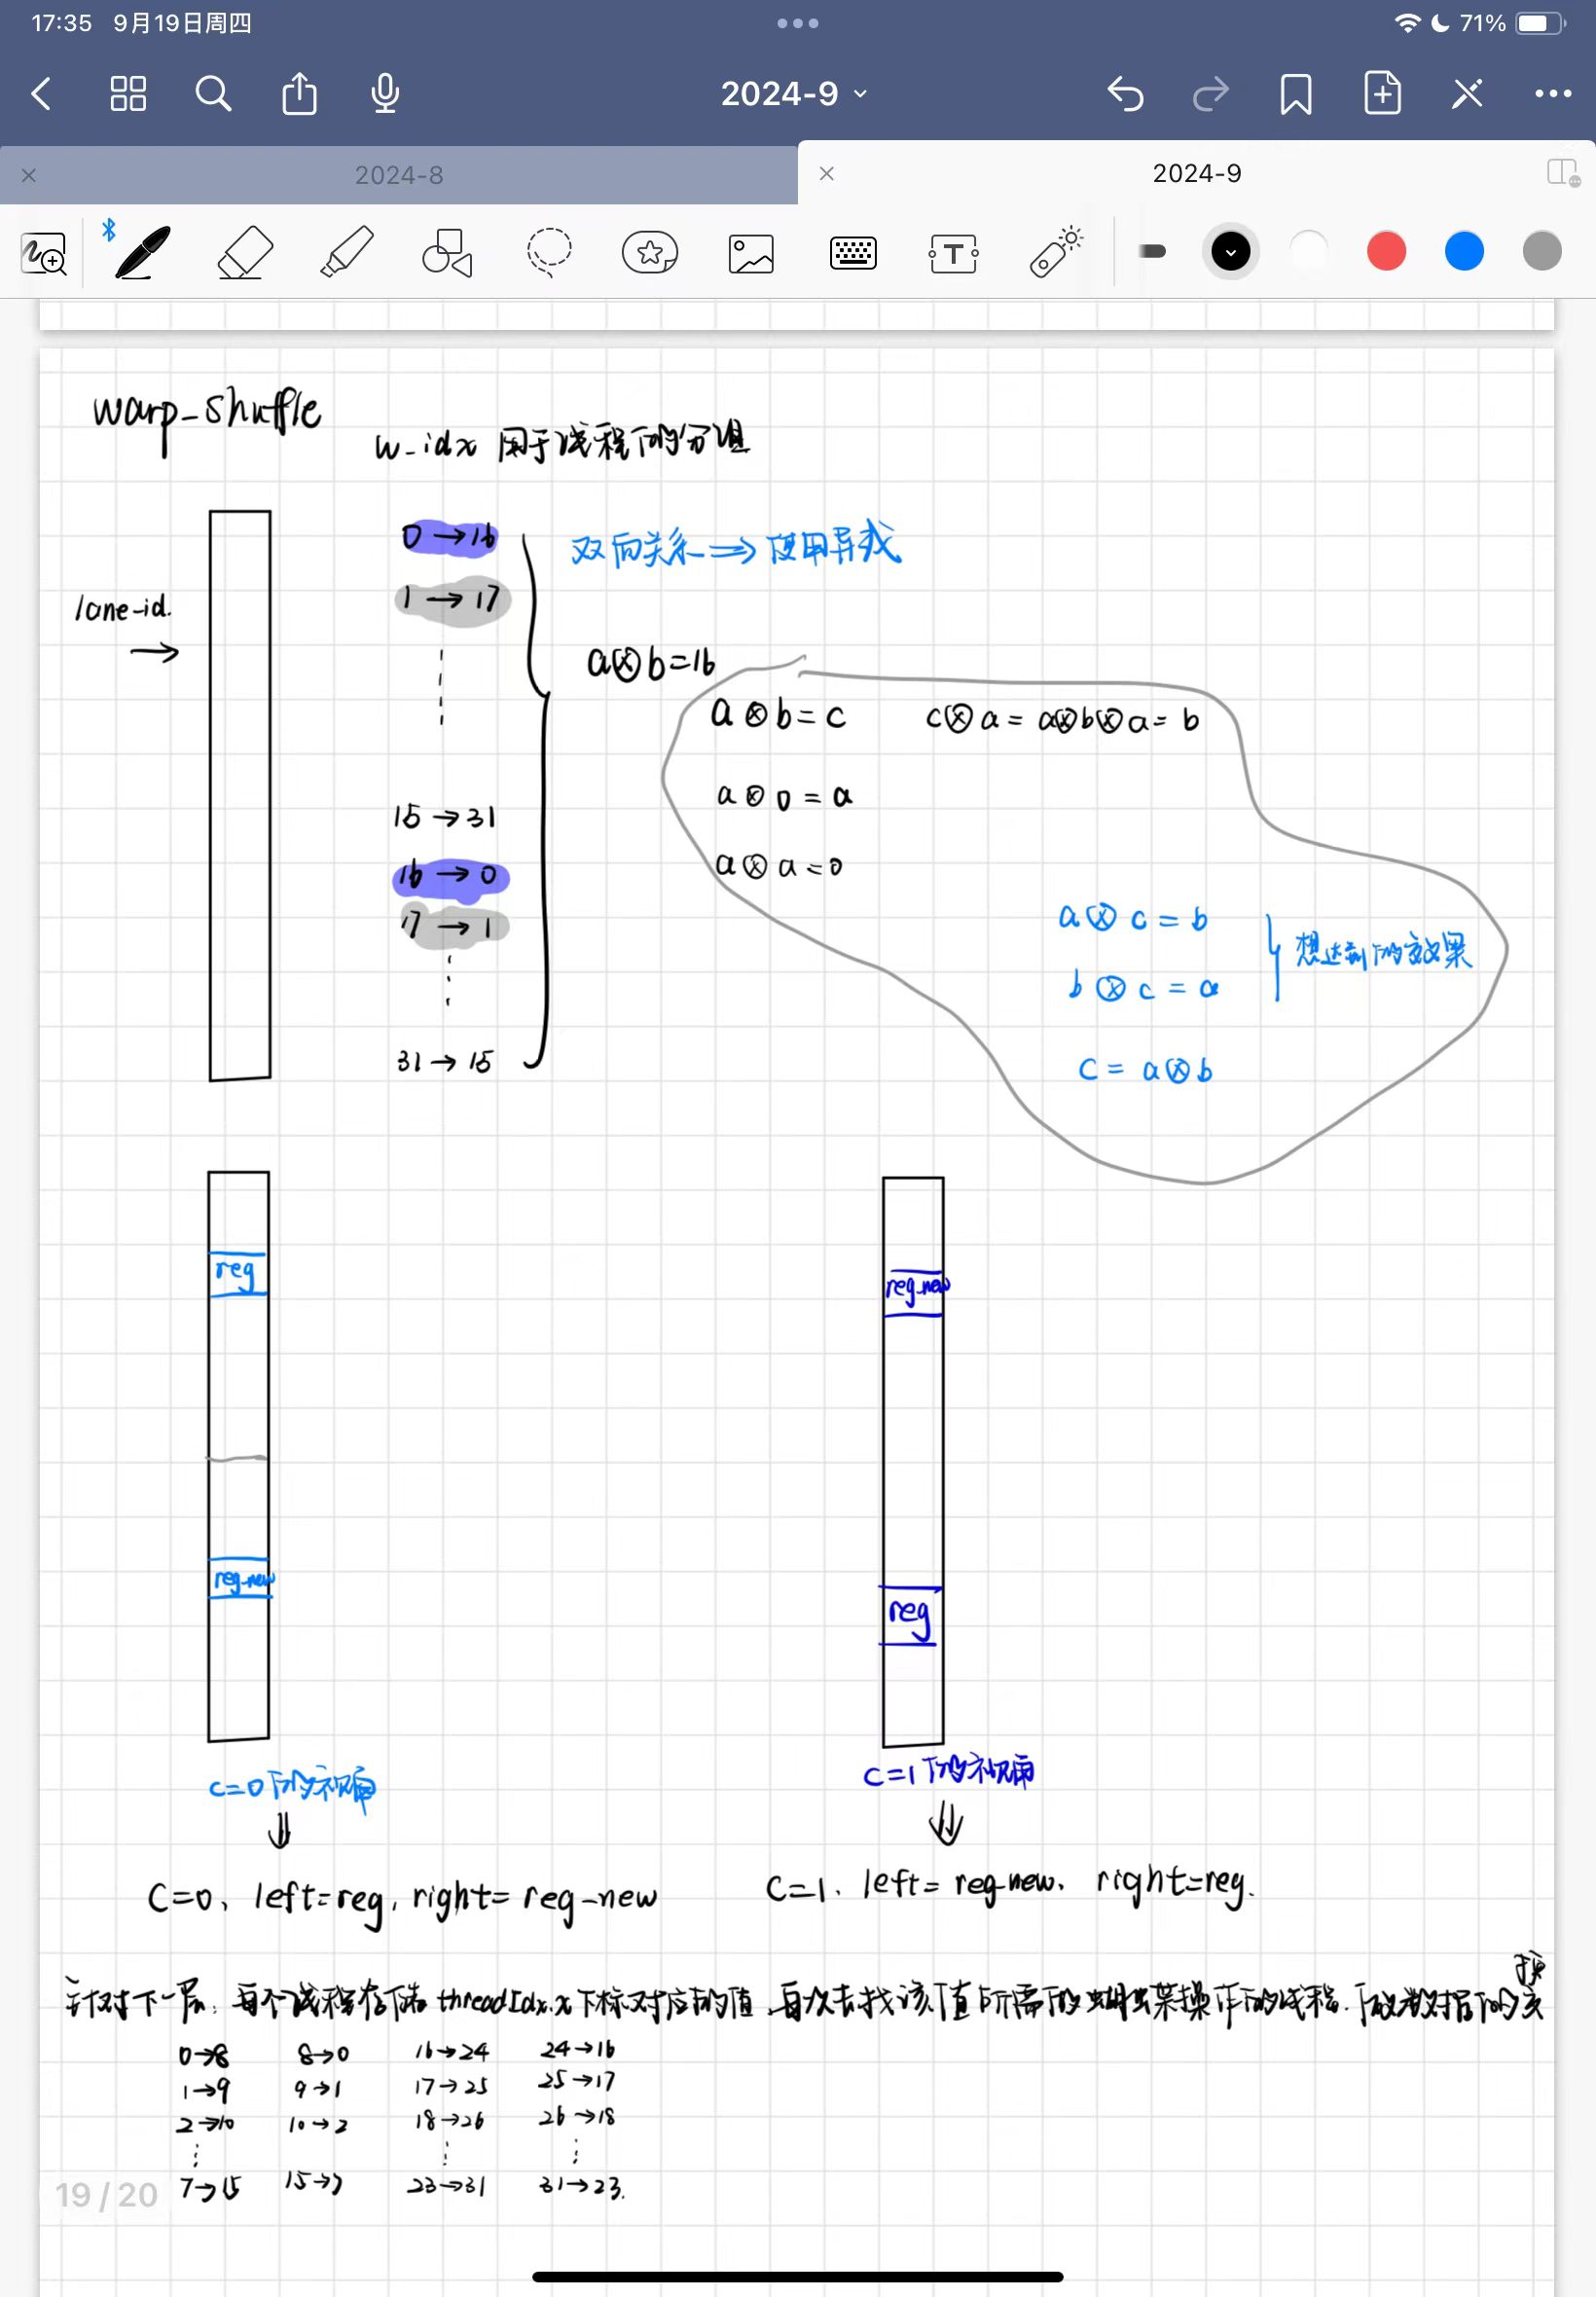 17:35 9月19日周四
71%
2024-9
2024-8
2024-9
warp_shuffle
w_idx 用于线程的分组
lane-id.
→
0→16
1→17
15→31
16→0
17→1
31→15
双向关系⇒使用异或
a⊗b=16
a⊗b=c c⊗a=a⊗b⊗a=b
a⊗0=a
a⊗a=0
a⊗c=b
b⊗c=a
想达到的效果
c=a⊗b
reg
reg-new
reg-new
reg
c=0的视角
c=1的视角
⇓
⇓
C=0、left=reg, right=reg-new
C=1、left=reg-new、right=reg.
针对下一层：每个线程存储threadIdx.x下标对应的值，每次去找该值所需的蝴蝶操作的线程，数据的交换
0→8 8→0 16→24 24→16
1→9 9→1 17→25 25→17
2→10 10→2 18→26 26→18
7→15 15→7 23→31 31→23.
19/20